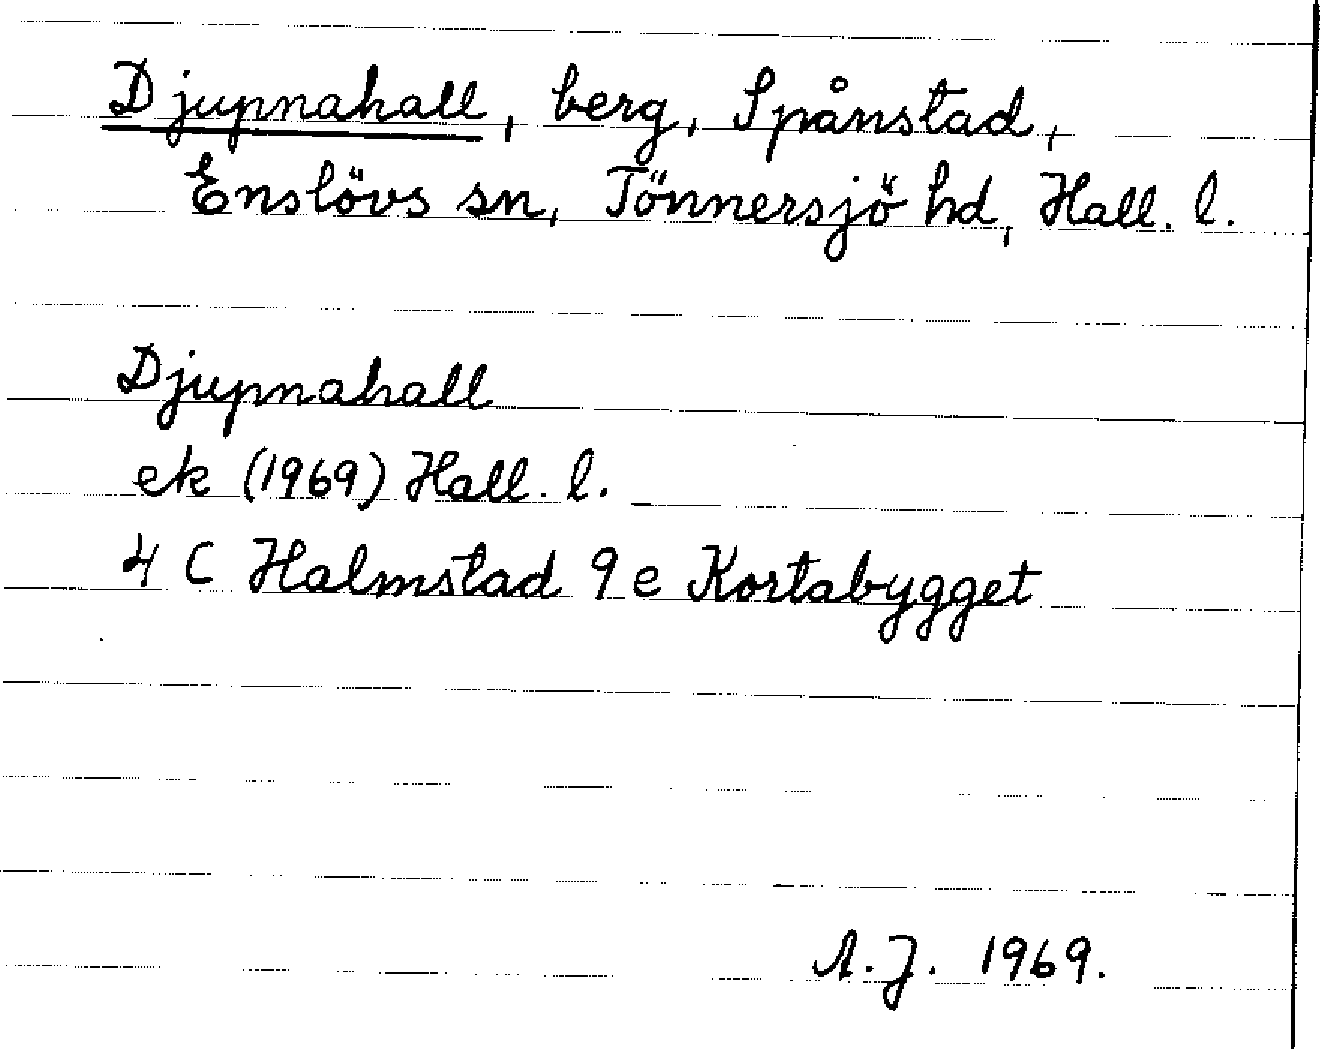 Djupnahall, berg, Spånstad,
Enslövs sn, Tönnersjö hd, Hall. l.
Djupnahall
ek (1969) Hall. l.
4 C Halmstad 9 e Kortabygget
A.J. 1969.